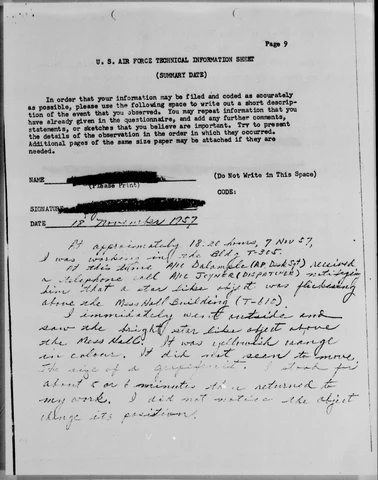 Page 9
U. S. AIR FORCE TECHNICAL INFORMATION SHEET
(SUMMARY DATE)
In order that your information may be filed and coded as accurately
as possible, please use the following space to write out a short descrip-
tion of the event that you observed. You may repeat information that you
have already given in the questionnaire, and add any further comments,
statements, or sketches that you believe are important. Try to present
the details of the observation in the order in which they occurred.
Additional pages of the same size paper may be attached if they are
needed.
NAME
(Please Print)
(Do Not Write in This Space)
CODE:
SIGNATURE
DATE 18 November 1957
At approximately 18:20 hours, 7 Nov 57,
I was working in the Bldg T-305.
At this time A/1C (AP Desk Sgt) received
a telephone call A/1C Joyner (DISPATCHER) notifying
him that a star like object was
above the Mess Hall Building (T-612)
I immidiately went outside and
saw the bright star like object above
the Mess Hall. It was yellowish orange
in colour. It did not seem to move,
the size of a grapefruit. I stood for
about 5 or 6 minutes then returned to
my work. I did not notice the object
change its position.